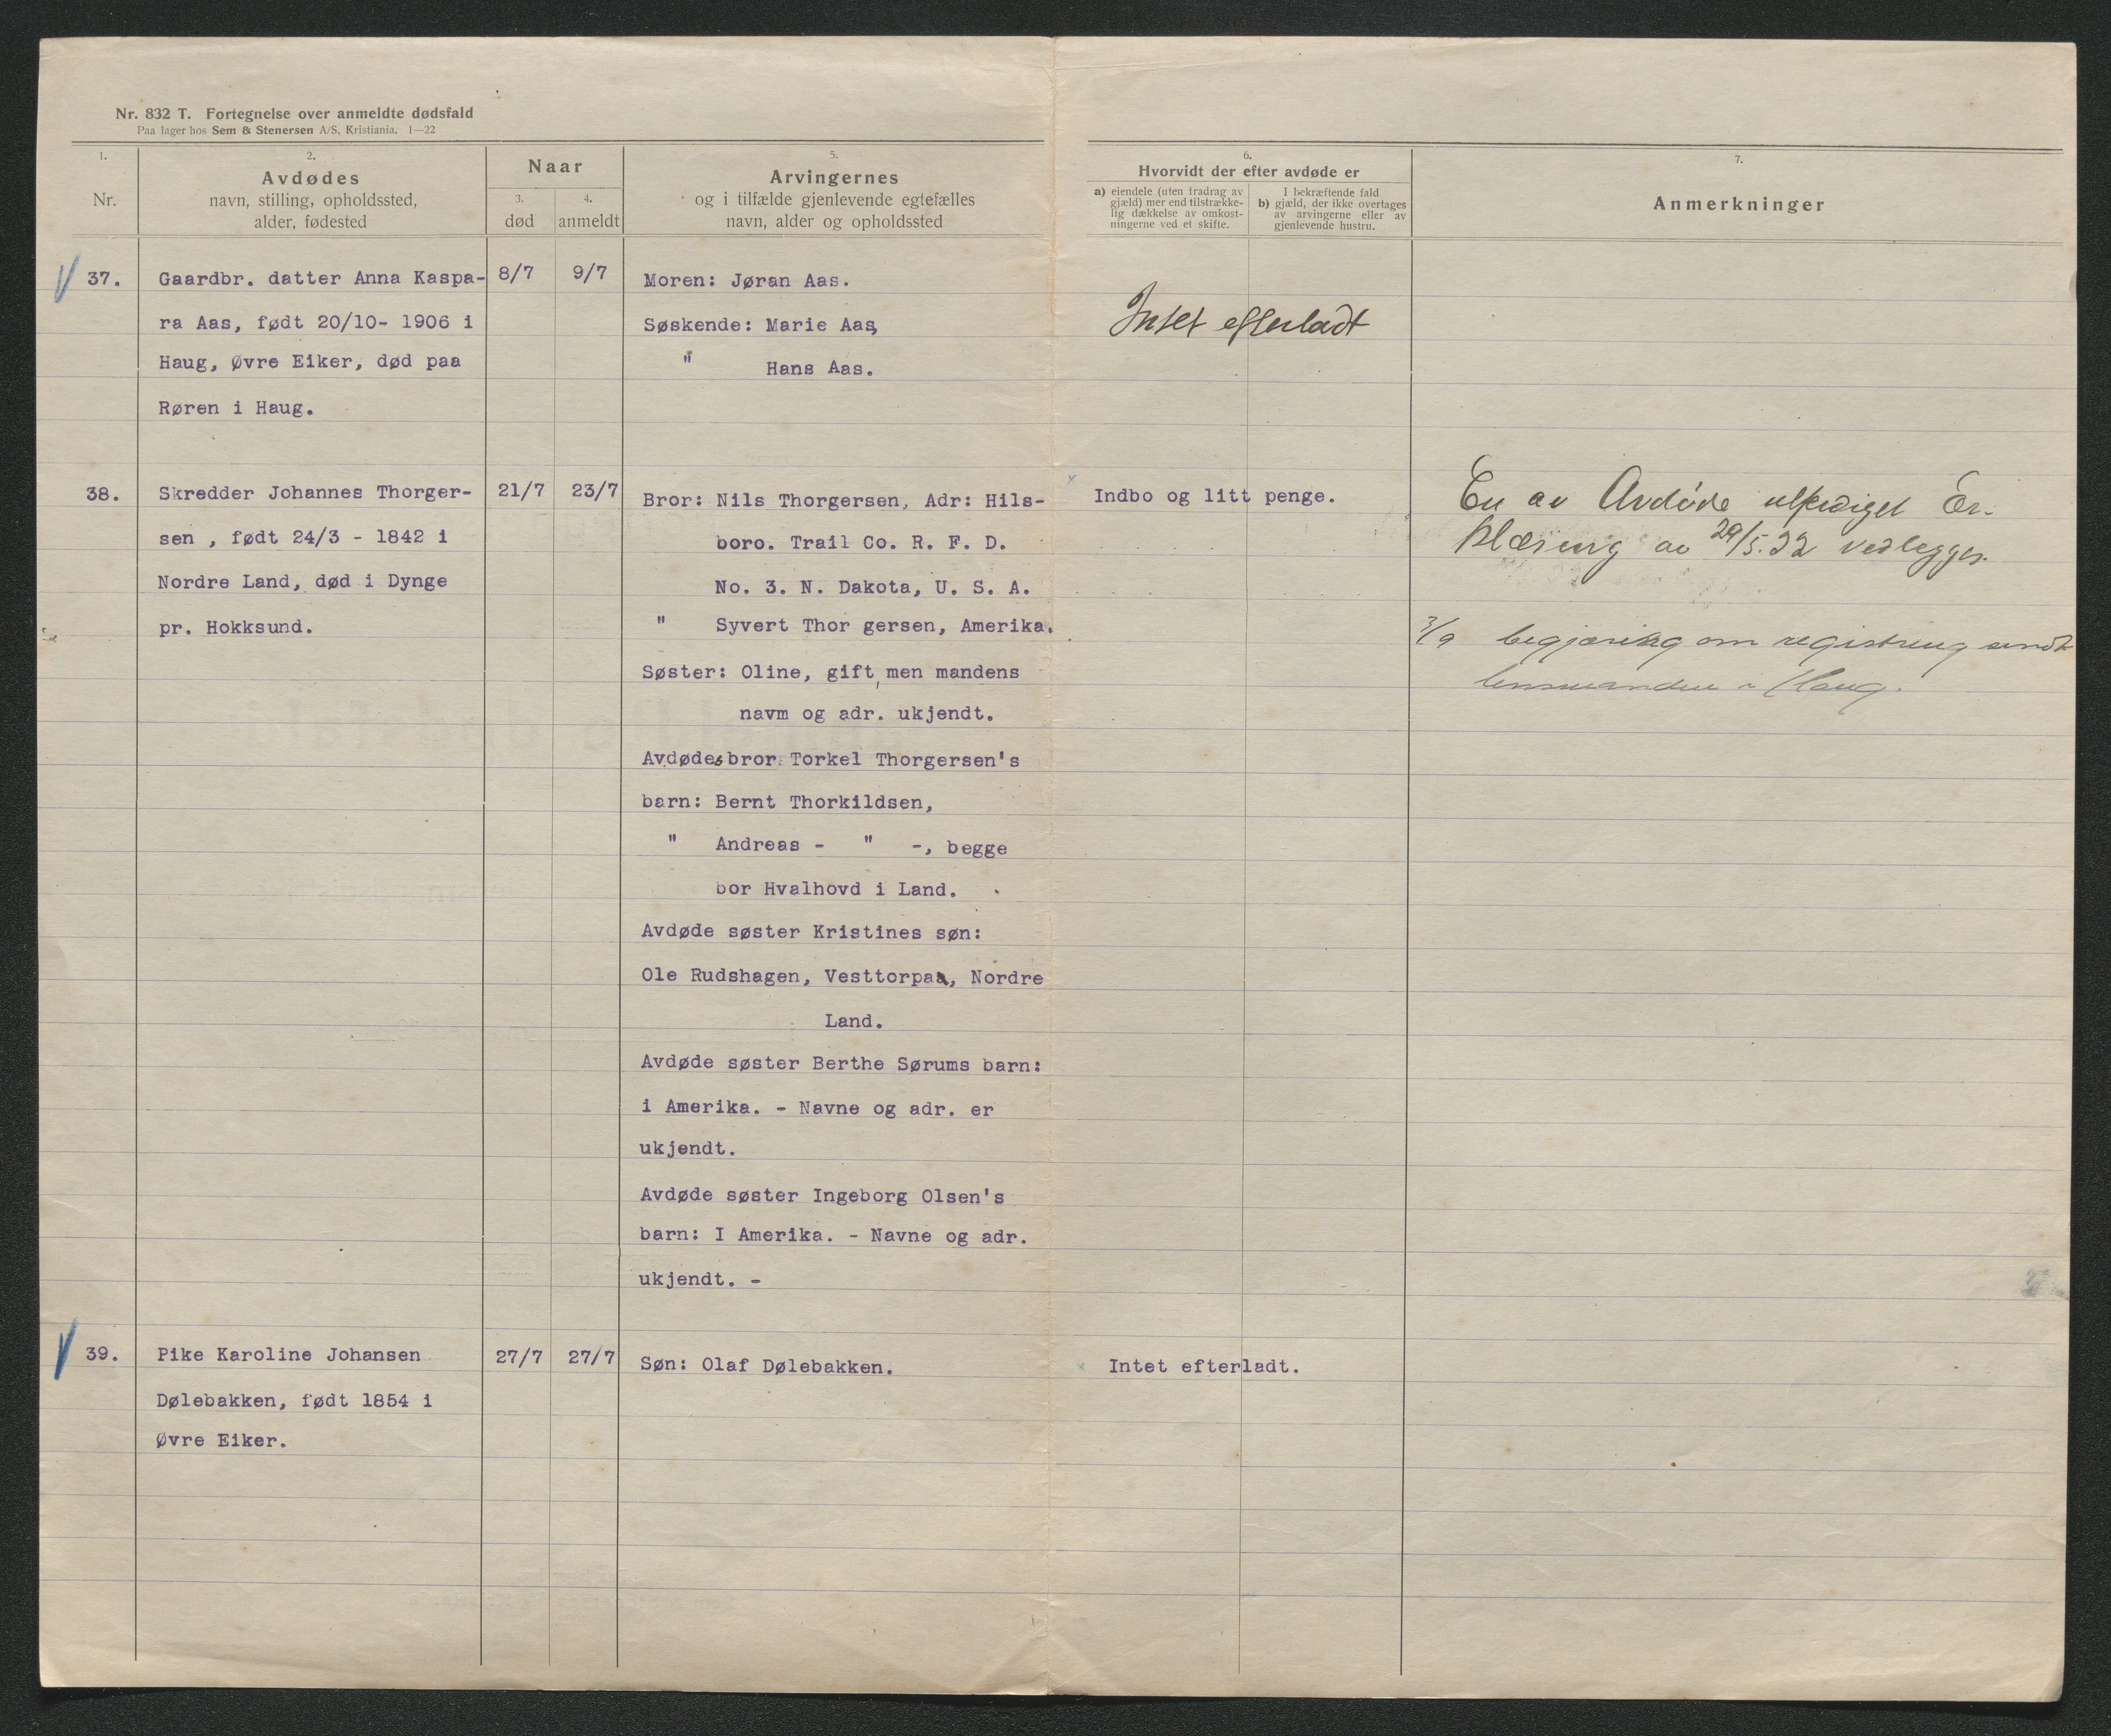 Nr. 832 T. Fortegnelse over anmeldte dødsfald
Paa lager hos Sem & Stenersen A/S, Kristiania. 1—22
1.
Nr.
2.
Avdødes
navn, stilling, opholdssted,
alder, fødested
Naar
3.
død
4.
anmeldt
5.
Arvingernes
og i tilfælde gjenlevende egtefælles
navn, alder og opholdssted
6.
Hvorvidt der efter avdøde er
a) eiendele (uten fradrag av
gjæld) mer end tilstrække-
lig dækkelse av omkost-
ningerne ved et skifte.
I bekræftende fald
b) gjæld, der ikke overtages
av arvingerne eller av
gjenlevende hustru.
7.
Anmerkninger
37.
Gaardbr. datter Anna Kaspa-
ra Aas, født 20/10- 1906 i
Haug, Øvre Eiker, død paa
Røren i Haug.
8/7
9/7
Moren: Jøran Aas.
Søskende: Marie Aas,
" Hans Aas.
Intet efterladt
38.
Skredder Johannes Thorger-
sen , født 24/3 - 1842 i
Nordre Land, død i Dynge
pr. Hokksund.
21/7
23/7
Bror: Nils Thorgersen, Adr: Hils-
boro. Trail Co. R. F. D.
No. 3. N. Dakota, U. S. A.
" Syvert Thor gersen, Amerika.
Søster: Oline, gift, men mandens
navm og adr. ukjendt.
Avdødes bror Torkel Thorgersen's
barn: Bernt Thorkildsen,
" Andreas - " -, begge
bor Hvalhovd i Land.
Avdøde søster Kristines søn:
Ole Rudshagen, Vesttorpaa, Nordre
Land.
Avdøde søster Berthe Sørums barn:
i Amerika. - Navne og adr. er
ukjendt.
Avdøde søster Ingeborg Olsen's
barn: I Amerika. - Navne og adr.
ukjendt. -
Indbo og litt penge.
En av Avdøde utferdiget Er-
klæring av 29/5.22 vedlegges.
7/9 begjæring om registrering sendt
lensmanden i Haug.
39.
Pike Karoline Johansen
Dølebakken, født 1854 i
Øvre Eiker.
27/7
27/7
Søn: Olaf Dølebakken.
Intet efterladt.